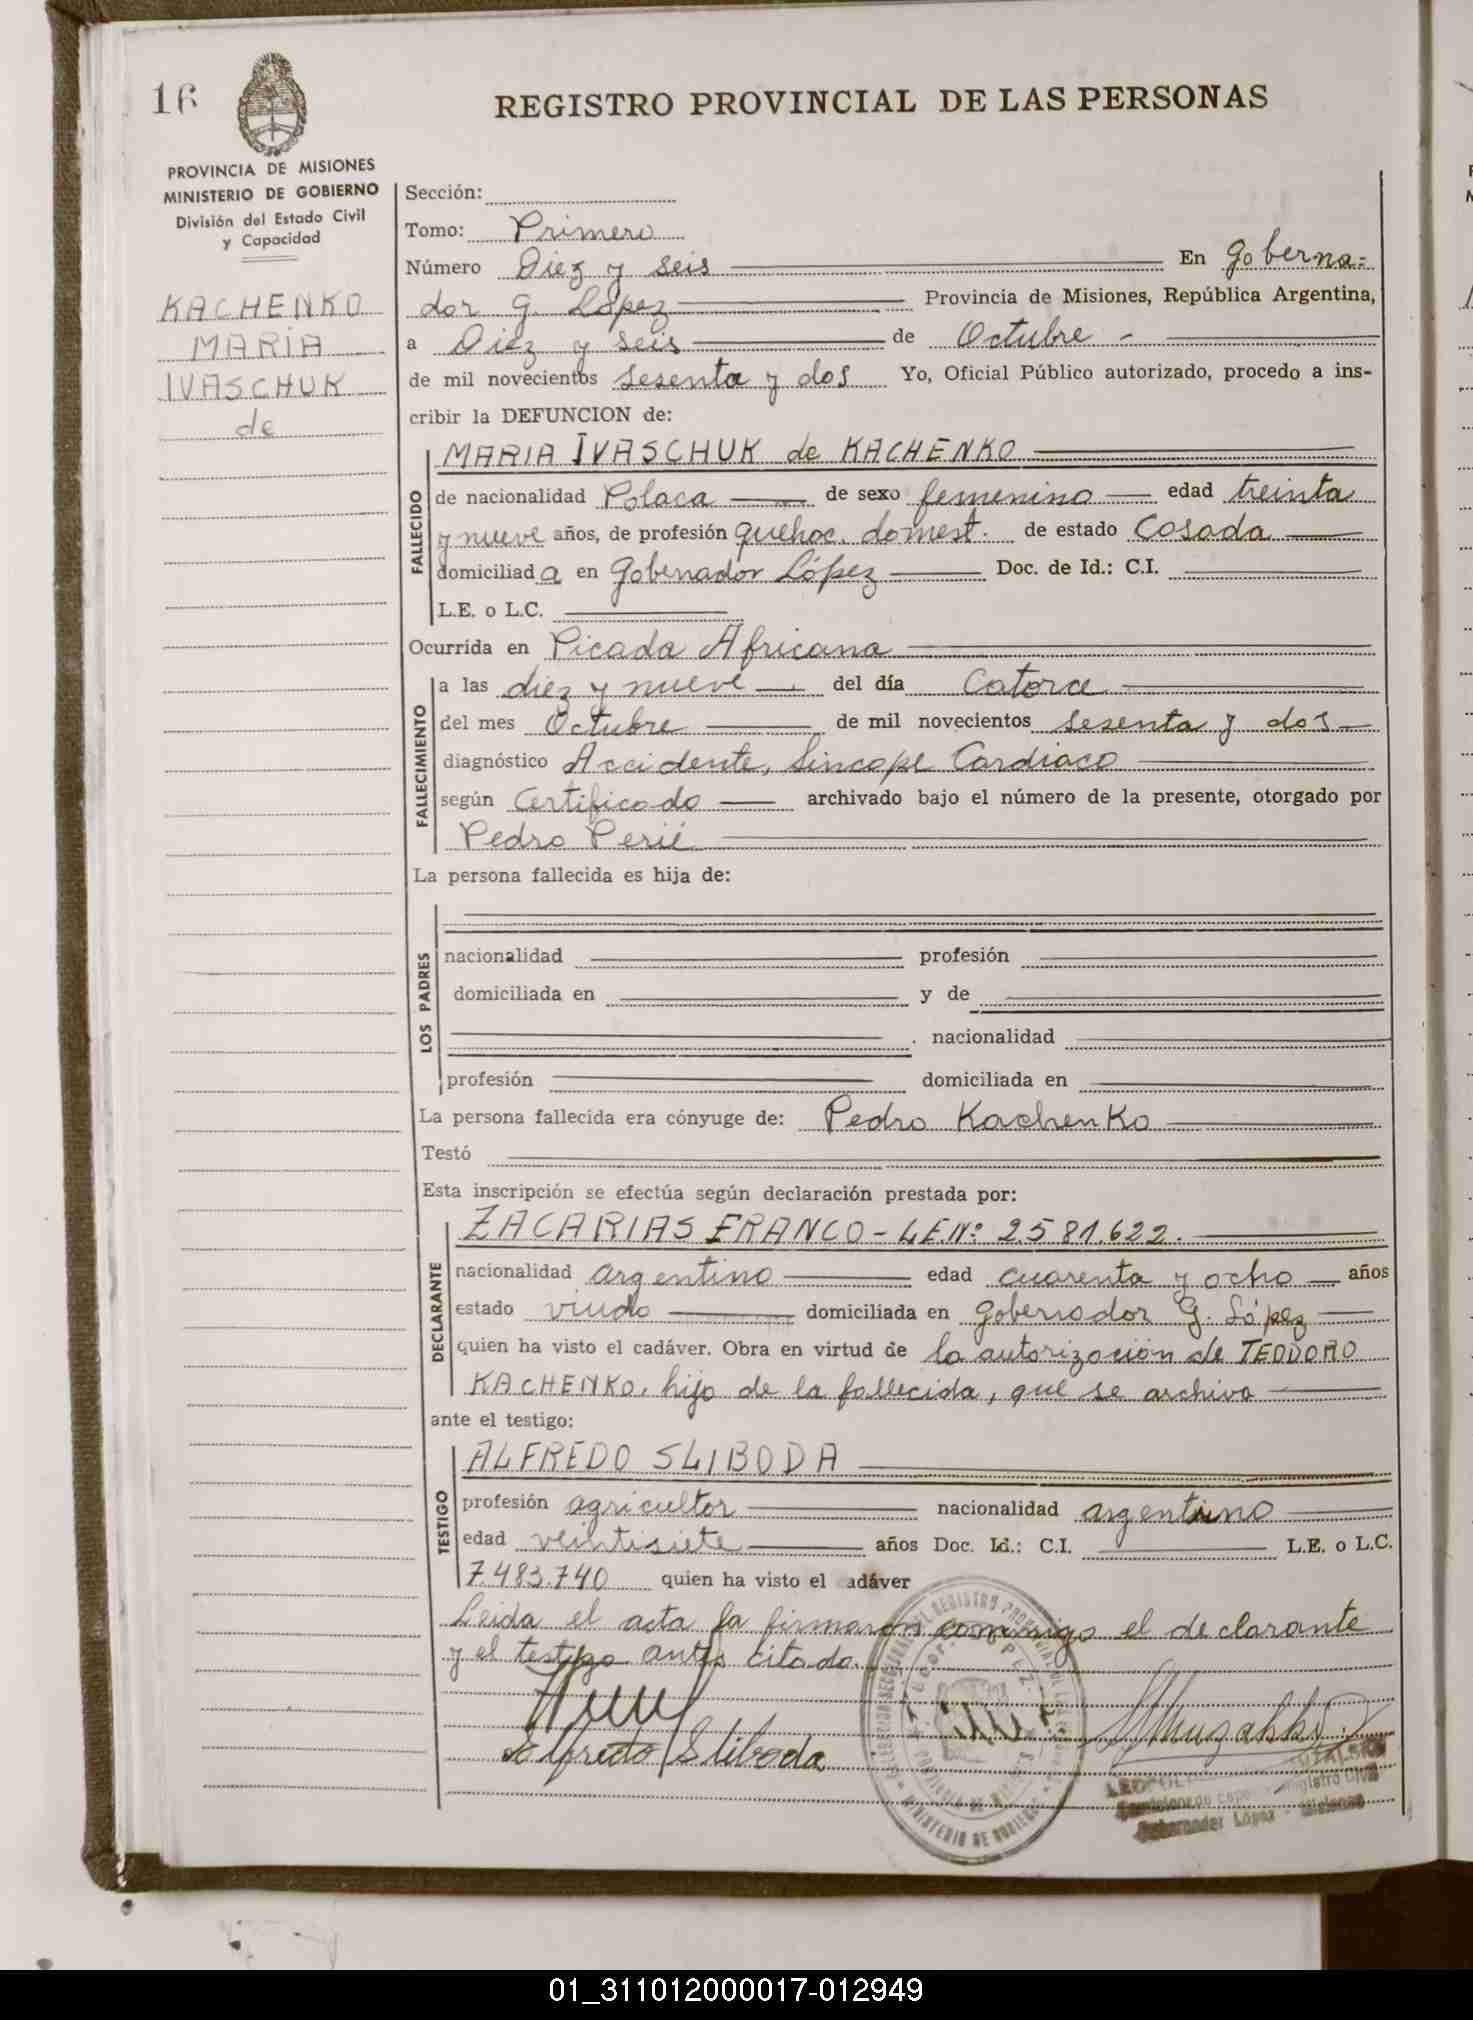 16
REGISTRO PROVINCIAL DE LAS PERSONAS
PROVINCIA DE MISIONES
MINISTERIO DE GOBIERNO
División del Estado Civil
y Capacidad
KACHENKO
MARIA
IVASCHUK
de
Sección:
Tomo: Primero
Número Diez y seis En Goberna=
dor G. López Provincia de Misiones, República Argentina,
a Diez y seis de Octubre -
de mil novecientos sesenta y dos Yo, Oficial Público autorizado, procedo a ins-
cribir la DEFUNCION de:
FALLECIDO
MARIA IVASCHUK de KACHENKO
de nacionalidad Polaca de sexo femenino edad treinta
y nueve años, de profesión quehac. domest. de estado Casada
domiciliada en Gobenador López Doc. de Id.: C.I.
L.E. o L.C.
Ocurrida en Picada Africana
FALLECIMIENTO
a las diez y nueve del día Catorce
del mes Octubre de mil novecientos sesenta y dos
diagnóstico Accidente, Sincope Cardiaco
según Certificado archivado bajo el número de la presente, otorgado por
Pedro
La persona fallecida es hija de:
LOS PADRES
nacionalidad profesión
domiciliada en y de
. nacionalidad
profesión domiciliada en
La persona fallecida era cónyuge de: Pedro Kachenko
Testó
Esta inscripción se efectúa según declaración prestada por:
DECLARANTE
ZACARIAS FRANCO - L.E.Nº 2.581.622.
nacionalidad argentino edad cuarenta y ocho años
estado viudo domiciliada en Gobernador G. López
quien ha visto el cadáver. Obra en virtud de la autorización de TEODORO
KACHENKO, hijo de la fallecida, que se archiva
ante el testigo:
TESTIGO
ALFREDO SLIBODA
profesión agricultor nacionalidad argentino
edad veintisiete años Doc. Id.: C.I. L.E. o L.C.
7.483.740 quien ha visto el adáver
Leida el acta la firmaron conmigo el declarante
y el testigo antes citado.
Alfredo Sliboda
MINISTERIO DE GOBIERNO
Gobernador López - Misiones
01_311012000017-012949